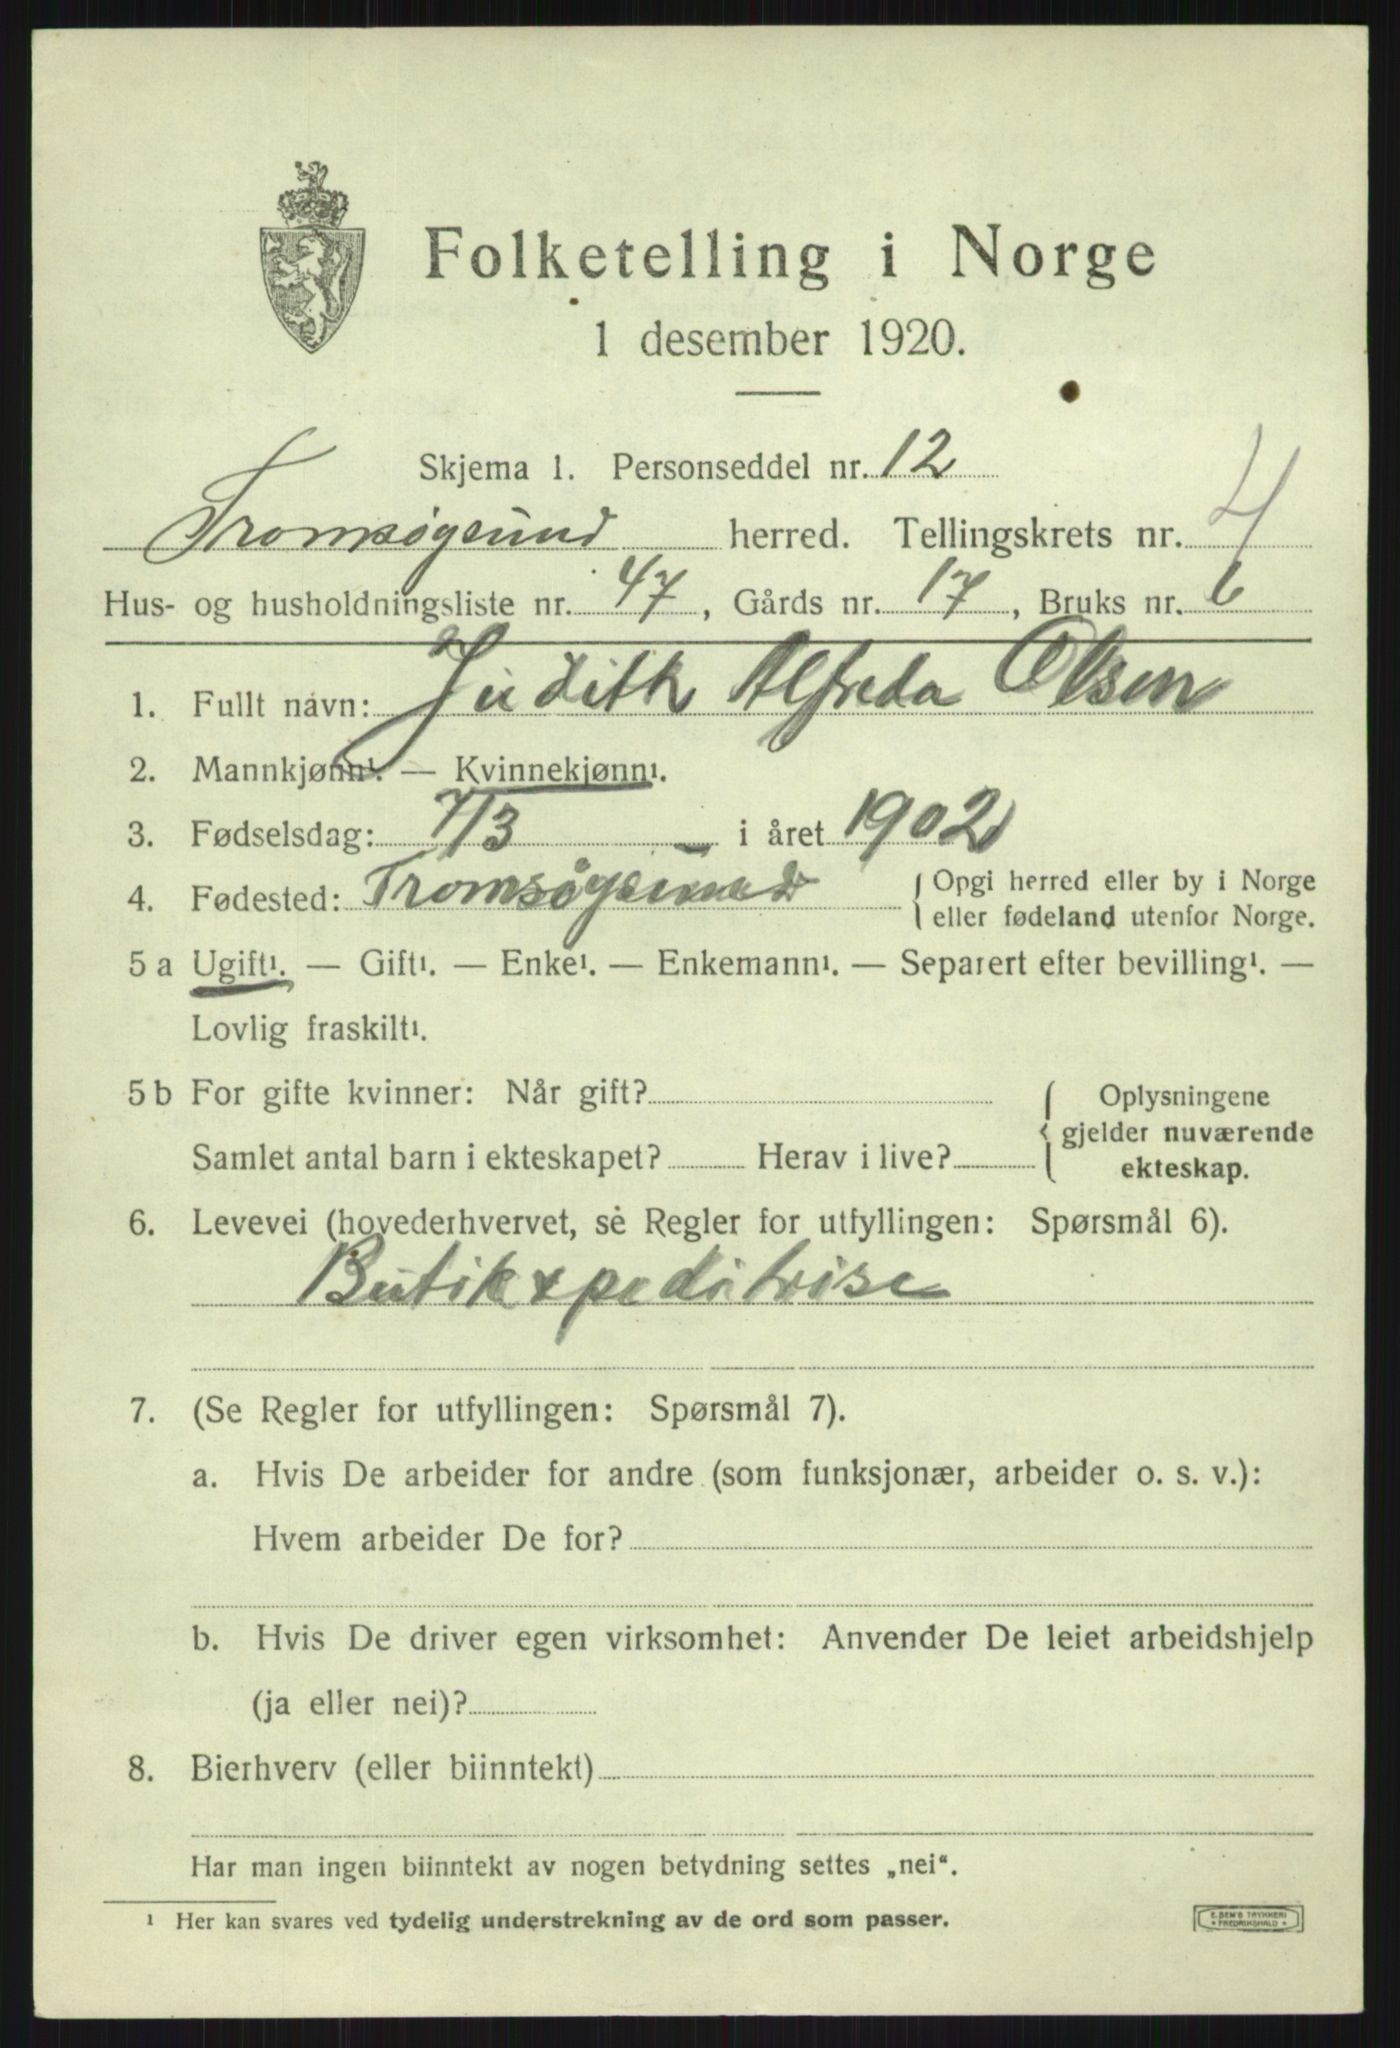 Folketelling i Norge
1 desember 1920.
Skjema 1. Personseddel nr. 12
Tromsøysund herred. Tellingskrets nr. 4
Hus- og husholdningsliste nr. 47, Gårds nr. 17, Bruks nr. 6
1. Fullt navn: Judith Alfreda Olsen
2. Mannkjønn¹. — Kvinnekjønn¹.
3. Fødselsdag: 7/3 i året 1902
4. Fødested: Tromsøysund { Opgi herred eller by i Norge
eller fødeland utenfor Norge.
5 a Ugift¹. — Gift¹. — Enke¹. — Enkemann¹. — Separert efter bevilling¹. —
Lovlig fraskilt¹.
5 b For gifte kvinner: Når gift? { Oplysningene
gjelder nuværende
Samlet antal barn i ekteskapet? Herav i live? ekteskap.
6. Levevei (hovederhvervet, se Regler for utfyllingen: Spørsmål 6).
Butikxpeditrise
7. (Se Regler for utfyllingen: Spørsmål 7).
a. Hvis De arbeider for andre (som funksjonær, arbeider o. s. v.):
Hvem arbeider De for?
b. Hvis De driver egen virksomhet: Anvender De leiet arbeidshjelp
(ja eller nei)?
8. Bierhverv (eller biinntekt)
Har man ingen biinntekt av nogen betydning settes „nei“.
¹ Her kan svares ved tydelig understrekning av de ord som passer.
E. SEM'S TRYKKERI
FREDRIKSHALD